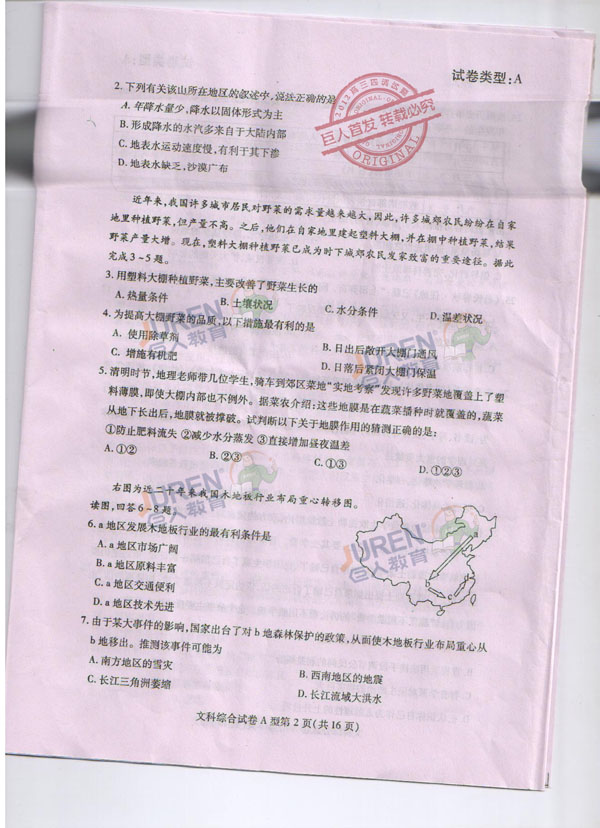 试卷类型:A
2.下列有关该山所在地区的叙述中,说法正确的是
A.年降水量少,降水以固体形式为主
B.形成降水的水汽多来自于大陆内部
C.地表水运动速度慢,有利于其下渗
D.地表水缺乏,沙漠广布
2012高三四调试题
巨人首发 转载必究
ORIGINAL
近年来,我国许多城市居民对野菜的需求量越来越大,因此,许多城郊农民纷纷在自家
地里种植野菜,但产量不高。之后,他们在自家地里建起塑料大棚,并在棚中种植野菜,结果
野菜产量大增。现在,塑料大棚种植野菜已成为时下城郊农民发家致富的重要途径。据此
完成3~5题。
3.用塑料大棚种植野菜,主要改善了野菜生长的
A.热量条件 B.土壤状况 C.水分条件 D.温差状况
4.为提高大棚野菜的品质,以下措施最有利的是
A.使用除草剂 B.日出后敞开大棚门通风
C.增施有机肥 D.日落后紧闭大棚门保温
5.清明时节,地理老师带几位学生,骑车到郊区菜地“实地考察”发现许多野菜地覆盖上了塑
料薄膜,即使大棚内部也不例外。据菜农介绍:这些地膜是在蔬菜播种时就覆盖的,蔬菜
从地下长出后,地膜就被撑破。试判断以下关于地膜作用的猜测正确的是:
①防止肥料流失 ②减少水分蒸发 ③直接增加昼夜温差
A.①② B.②③ C.①③ D.①②③
右图为近二十年来我国木地板行业布局重心转移图。
读图,回答6~8题。
6.a地区发展木地板行业的最有利条件是
A.a地区市场广阔
B.a地区原料丰富
C.a地区交通便利
D.a地区技术先进
7.由于某大事件的影响,国家出台了对b地森林保护的政策,从而使木地板行业布局重心从
b地移出。推测该事件可能为
A.南方地区的雪灾 B.西南地区的地震
C.长江三角洲萎缩 D.长江流域大洪水
文科综合试卷A型第2页(共16页)
JUREN
巨人教育
JUREN
巨人教育
JUREN
巨人教育
JUREN
巨人教育